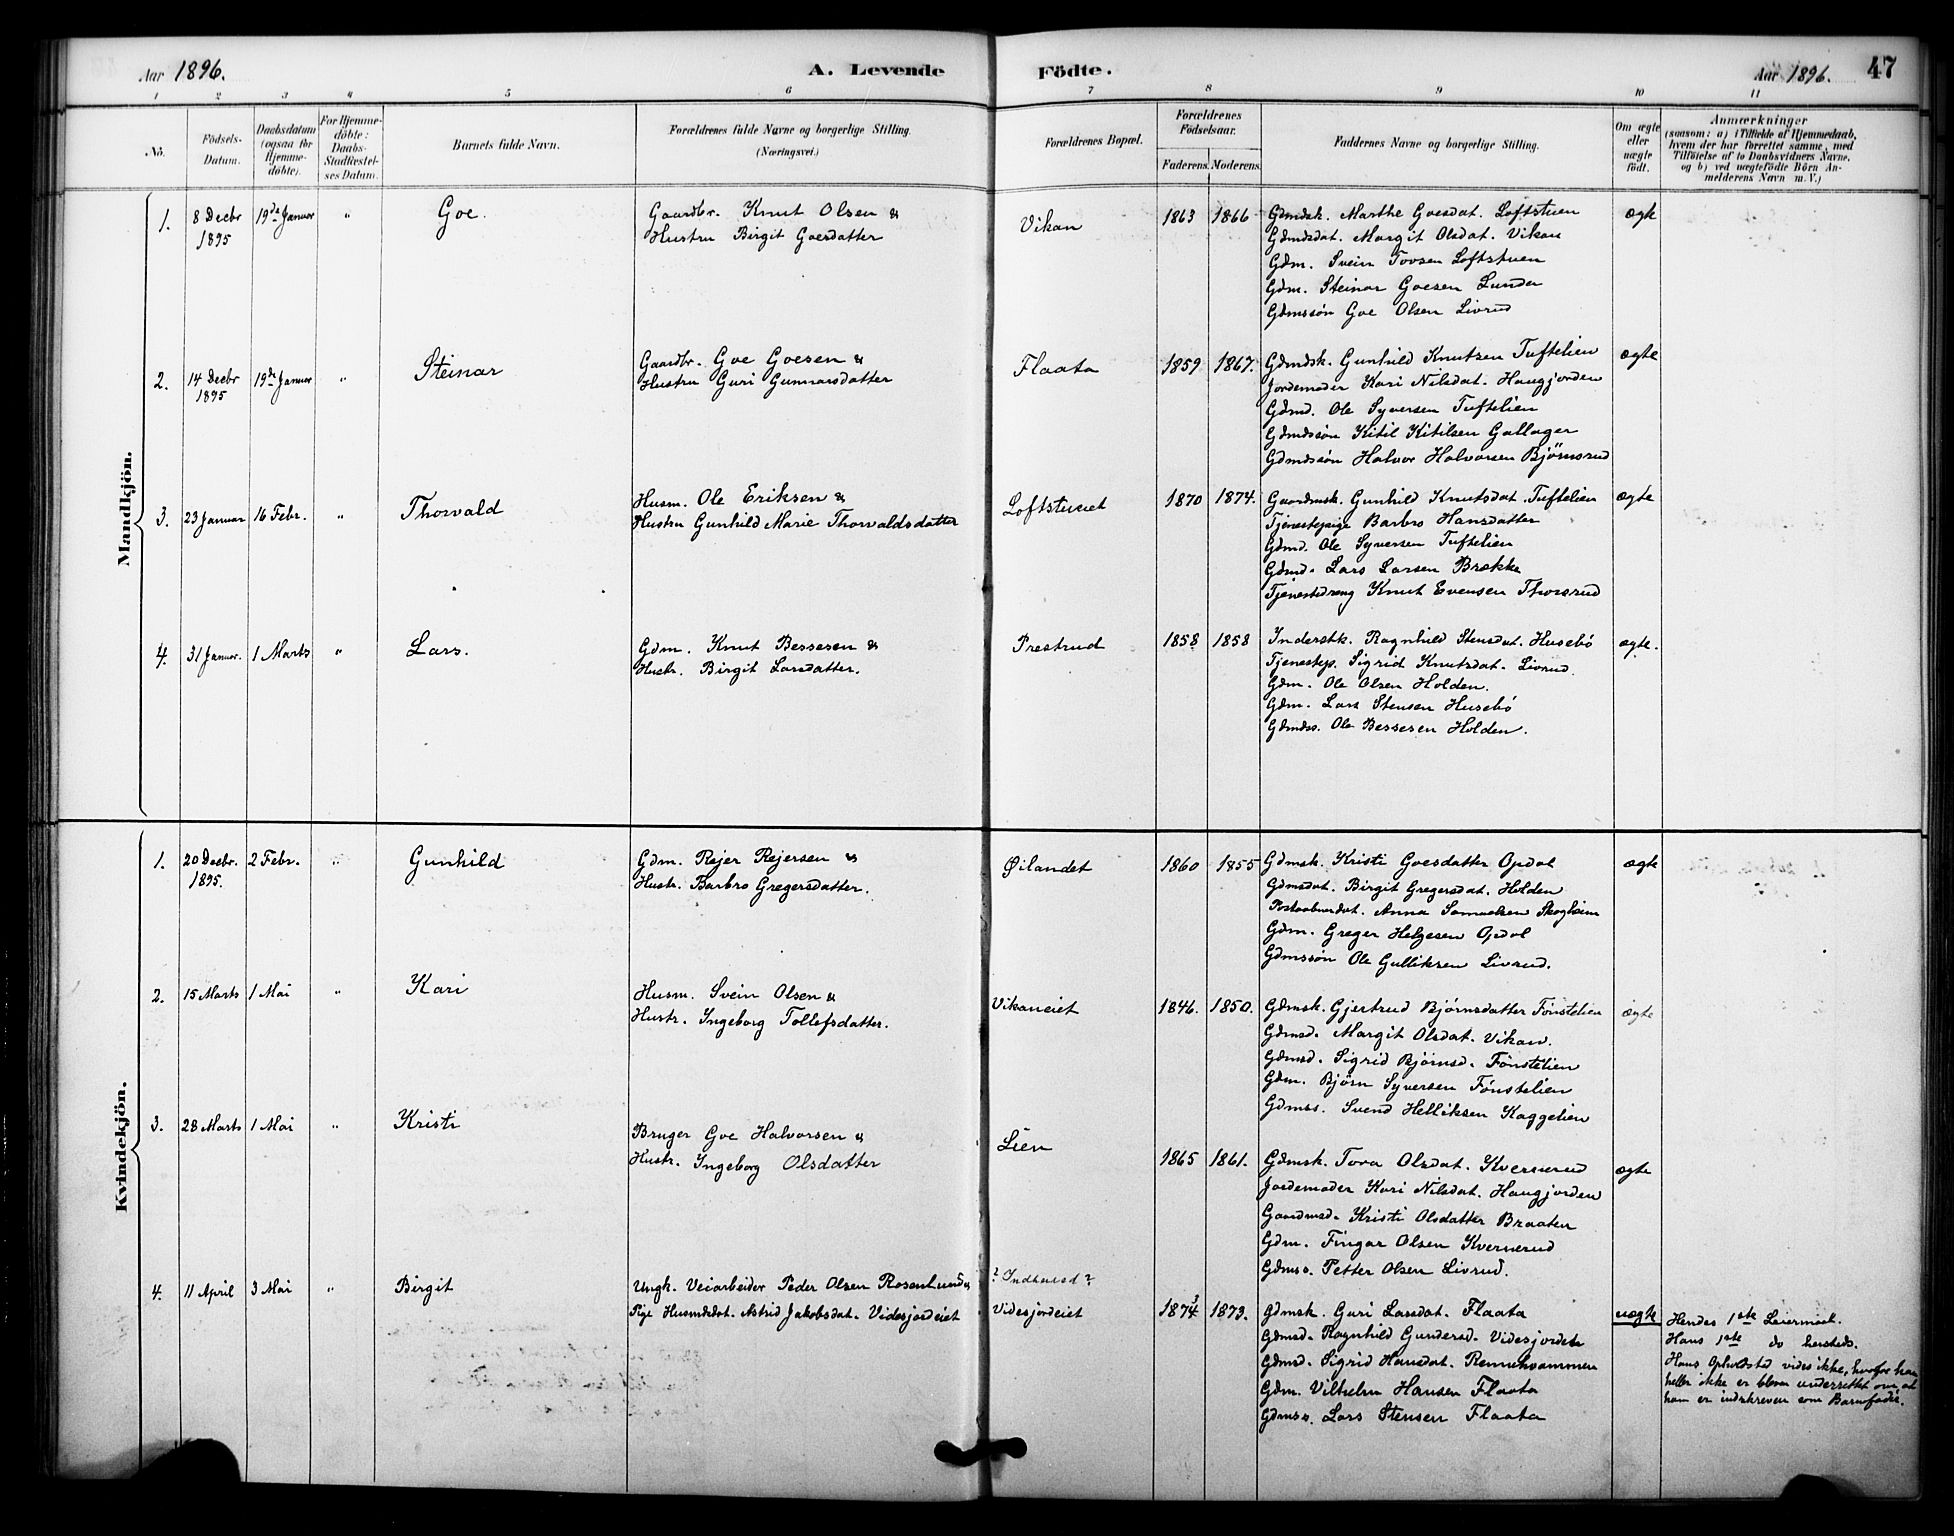 Aar 1896.
A. Levende Födte.
Aar 1896.
47
1 2 3 4 5 6 7 8 9 10 11
No.
Födsels-Datum.
Daabsdatum (ogsaa for Hjemme-döbte).
For Hjemme-döbte: Daabs-Stadfæstel-ses Datum.
Barnets fulde Navn.
Forældrenes fulde Navne og borgerlige Stilling.
(Næringsvei.)
Forældrenes Bopæl.
Forældrenes Födselsaar.
Faderens. Moderens.
Faddernes Navne og borgerlige Stilling.
Om ægte eller uægte födt.
Anmærkninger
(saasom: a) i Tilfælde af Hjemmedaab,
hvem der har forrettet samme, med
Tilföielse af to Daabsvidners Navne,
og b) ved uægtefödte Börn An-
melderens Navn m. V.)
Mandkjön.
1. 8 Decbr 1895 19de Januar " Goe.
Gaardbr. Knut Olsen &
Hustru Birgit Goesdatter
Vikan 1863 1866
Gdmdsk. Marthe Goesdat. Loftstuen
Gdmdsdat. Margit Olsdat. Vikan
Gdm. Svein Tovsen Loftstuen
Gdm. Steinar Goesen Lunder
Gdmssön Goe Olsen Livrud
ægte
2. 14 Decbr 1895 19de Januar " Steinar
Gaardbr. Goe Goesen &
Hustru Guri Gunnarsdatter
Flaata 1859 1867.
Gdmdsk. Gunhild Knutsen Tuftelien
Jordemoder Kari Nilsdat. Haugjorden
Gdmd. Ole Syversen Tuftelien
Gdmdssön Kitil Kitilsen Gallager
Gdmdssön Halvor Halvorsen Bjørnsrud
ægte
3. 23 Januar 16 Febr. " Thorvald
Husm. Ole Eriksen &
Hustru Gunhild Marie Thorvaldsdatter
Loftstueiet 1870 1874.
Gaardmsk. Gunhild Knutsdat. Tuftelien
Tjenestepige Barbro Hansdatter
Gdmd. Ole Syversen Tuftelien
Gdmd. Lars Larsen Brække
Tjenestedreng Knut Evensen Thorsrud
ægte
4. 31 Januar. 1 Marts " Lars.
Gdm. Knut Bessesen &
Hustr. Birgit Larsdatter.
Prestrud 1858 1858
Inderstk. Ragnhild Stensdat. Husebö
Tjenestep. Sigrid Knutsdat. Livrud.
Gdm. Ole Olsen Holden.
Gdm. Lars Stensen Husebö
Gdmdss. Ole Bessesen Holden.
ægte.
Kvindekjön.
1. 20 Decbr. 1895. 2 Febr. " Gunhild
Gdm. Rejer Rejersen &
Hustr. Barbro Gregersdatter.
Øilandet 1860 1855
Gdmsk. Kristi Goesdatter Opdal
Gdmsdat. Birgit Gregersdat. Holden
Postaabnerdat. Anna Samuelsen Skogheim
Gdm. Greger Helgesen Opdal
Gdmssön Ole Gulliksen Livrud.
ægte
2. 15 Marts 1 Mai " Kari
Husm. Svein Olsen &
Hustr. Ingeborg Tollefsdatter.
Vikaneiet 1846. 1850.
Gdmsk. Gjertrud Bjørnsdatter Fønstelien
Gdmsd. Margit Olsdat. Vikan.
Gdmsd. Sigrid Bjørnsd. Fønstelien
Gdm. Bjørn Syversen Fønstelien
Gdmss. Svend Helliksen Kaggelien
ægte
3. 28 Marts 1 Mai " Kristi
Bruger Goe Halvorsen &
Hustr. Ingeborg Olsdatter
Lien 1865 1861.
Gdmsk. Tora Olsdat. Kvernerud
Jordemoder Kari Nilsdat. Haugjorden
Gaardmsd. Kristi Olsdatter Braaten
Gdm. Fingar Olsen Kvernerud
Gdmss. Petter Olsen Livrud.
ægte
4. 11 April 3 Mai " Birgit
Ungk. Veiarbeider Peder Olsen Rosenlund &
Pige Husmdsdat. Astrid Jakobsdat. Videsjordeiet
? Indherred ?
Videsjordeiet 1874 3 1873.
Gdmsk. Guri Larsdat. Flaata
Gdmsd. Ragnhild Gundersd. Videsjordet
Gdmsd. Sigrid Hansdat. Rennehvammen
Gdm. Vilhelm Hansen Flaata
Gdmss. Lars Stensen Flaata
uægte
Hendes 1ste Leiermaal.
Hans 1ste do hersteds.
Hans Opholdsted vides ikke, hvorfor han
heller ikke er bleven underrettet om, at
han er indskreven som Barnefader.